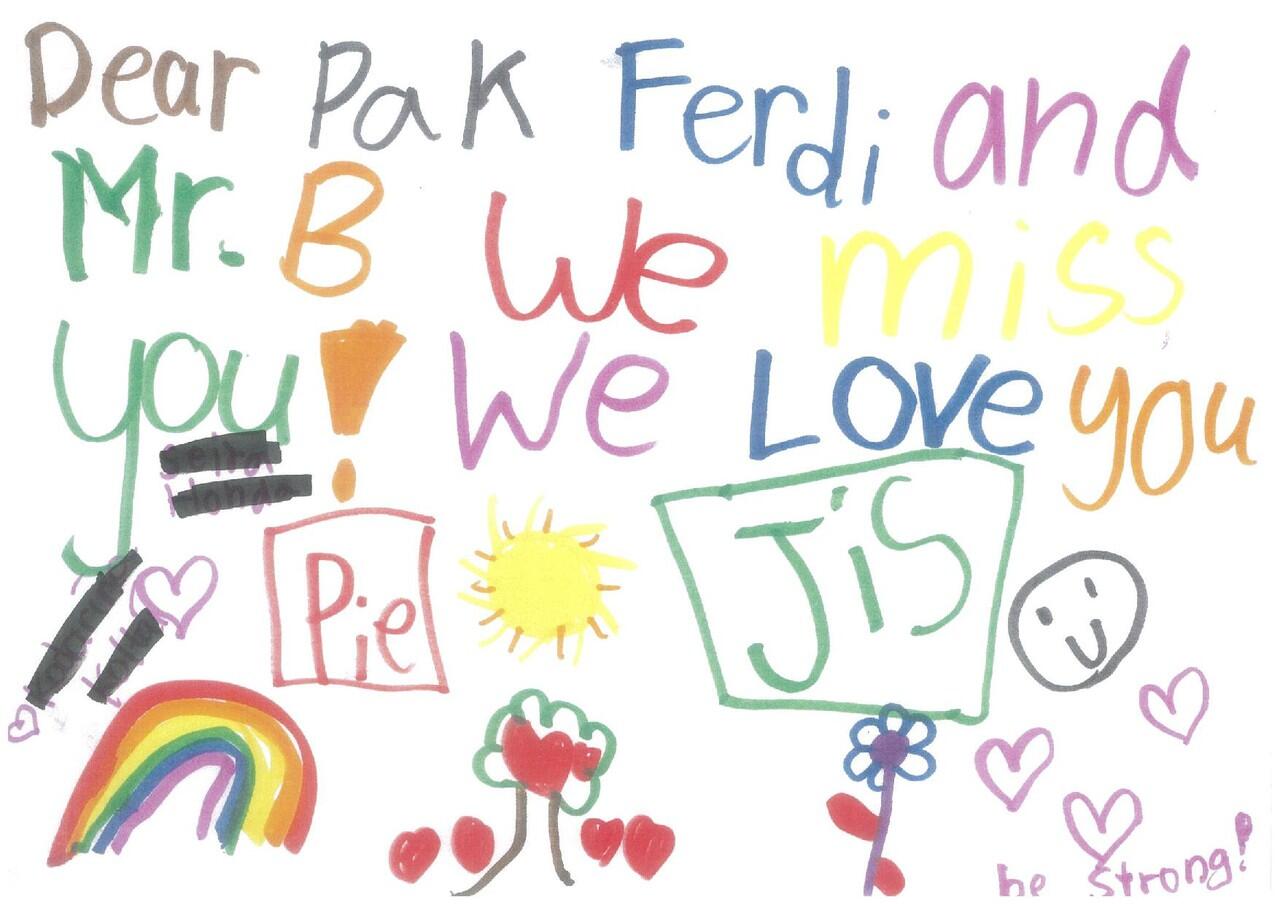 Dear Pak Ferdi and
Mr. B We miss
you! We Love you
Pie
JiS
be strong!